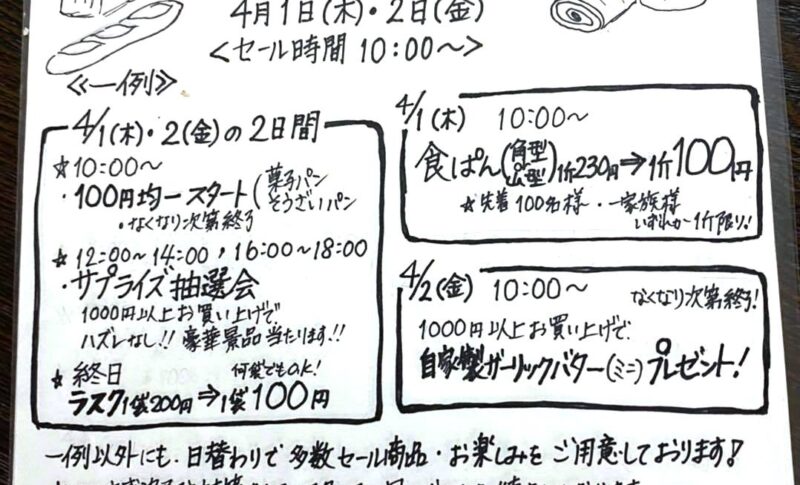 4月1日(木)・2日(金)
<セール時間 10:00〜>
≪一例≫
4/1(木)・2(金)の2日間
☆10:00〜
・100円均一スタート(菓子パン
そうざいパン
・なくなり次第終了
☆12:00〜14:00,16:00〜18:00
・サプライズ抽選会
1000円以上お買い上げで
ハズレなし!!豪華景品当たります!!
☆終日 何袋でもOK!
ラスク1袋200円⇒1袋100円
4/1(木) 10:00〜
食ぱん(角型 山型)1斤230円⇒1斤100円
☆先着100名様・一家族様
いずれか1斤限り!
4/2(金) 10:00〜 なくなり次第終了!
1000円以上お買い上げで
自家製ガーリックバター(ミニ)プレゼント!
一例以外にも、日替わりで多数セール商品・お楽しみをご用意しております!